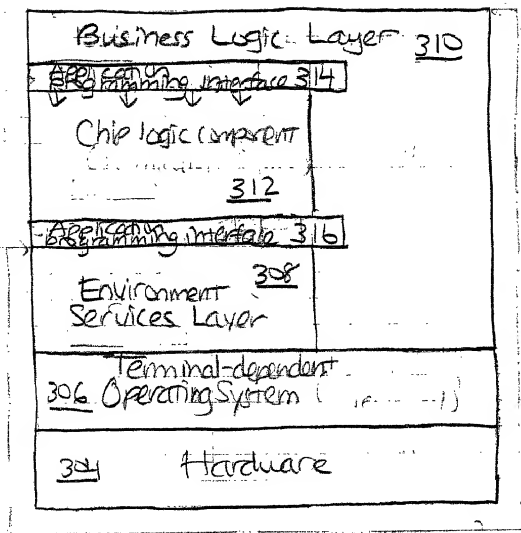 Business Logic Layer 310
Application
programming interface 314
Chip logic component
312
Application
programming interface 316
308
Environment
Services Layer
Terminal-dependent
306 Operating System (
304 Hardware